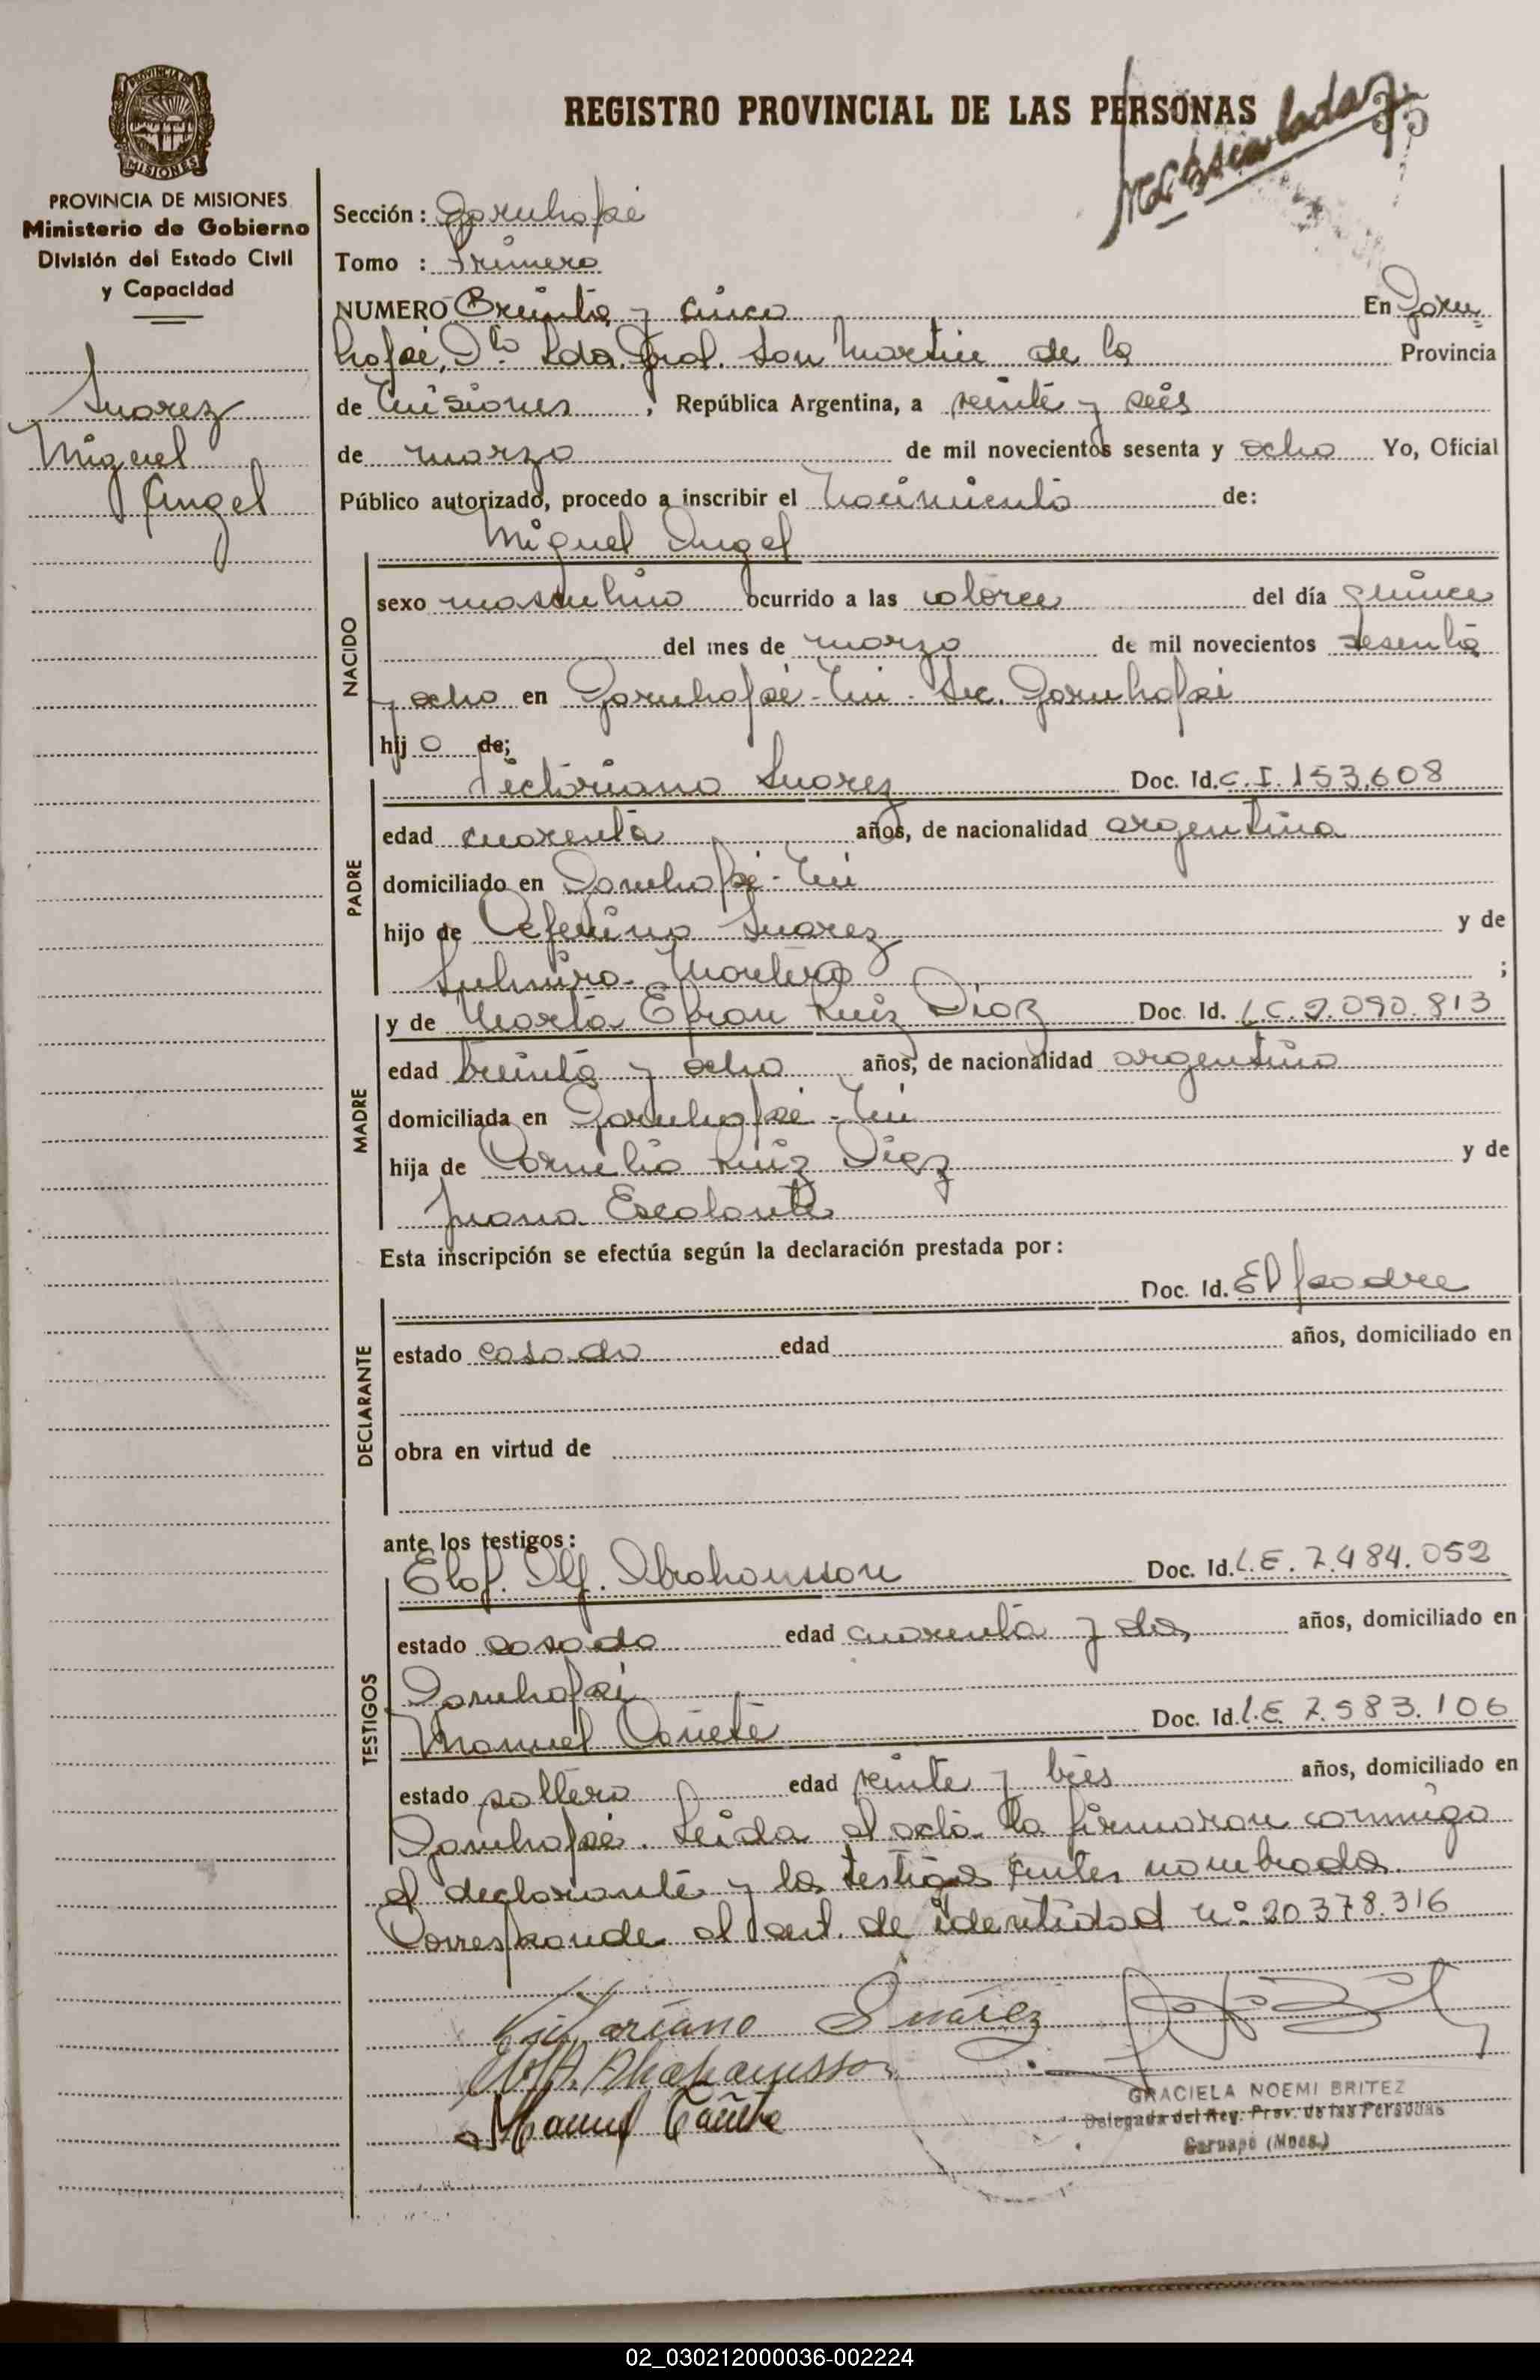 REGISTRO PROVINCIAL DE LAS PERSONAS
35
PROVINCIA DE
MISIONES
PROVINCIA DE MISIONES
Ministerio de Gobierno
División del Estado Civil
y Capacidad
Suarez
Miguel
Angel
Sección: Garuhapé
Tomo : Primero
NUMERO Treinta y cinco En Garu
hapé, Dto Lda. Gral. San Martin de la Provincia
de Misiones, República Argentina, a veinte y seis
de marzo de mil novecientos sesenta y ocho Yo, Oficial
Público autorizado, procedo a inscribir el Nacimiento de:
Miguel Angel
NACIDO
sexo masculino ocurrido a las catorce del día quince
del mes de marzo de mil novecientos sesenta
y ocho en Garuhapé-Mi- Sec. Garuhapé
hijo de;
PADRE
Victoriano Suarez Doc. Id. C.I. 153.608
edad cuarenta años, de nacionalidad argentina
domiciliado en Garuhapé-Mi
hijo de Ceferino Suarez y de
Montero ;
MADRE
y de Marta Efran Ruiz Diaz Doc. Id. L.C. 2.090.813
edad treinta y ocho años, de nacionalidad argentina
domiciliada en Garuhapé-Mi
hija de Cornelio Ruiz Diaz y de
Juana Escalante
Esta inscripción se efectúa según la declaración prestada por:
DECLARANTE
Doc. Id. El padre
estado casado edad años, domiciliado en
obra en virtud de
ante los testigos:
TESTIGOS
Elof. Alf. Abrahamsson Doc. Id. L.E. 7.484.052
estado casado edad cuarenta y dos años, domiciliado en
Garuhapé
Manuel Cañete Doc. Id. L.E. 7.583.106
estado soltero edad veinte y tres años, domiciliado en
Garuhapé. Leida el acta la firmaron conmigo
el declarante y los testigos antes nombrados.
Corresponde al cert. de identidad nº 20.378.316
Victoriano Suárez
Elof A. Abrahamsson
Manuel Cañete
GRACIELA NOEMI BRITEZ
Delegada del Reg. Prov. de las Personas
Garuapé (Mnes.)
02_030212000036-002224